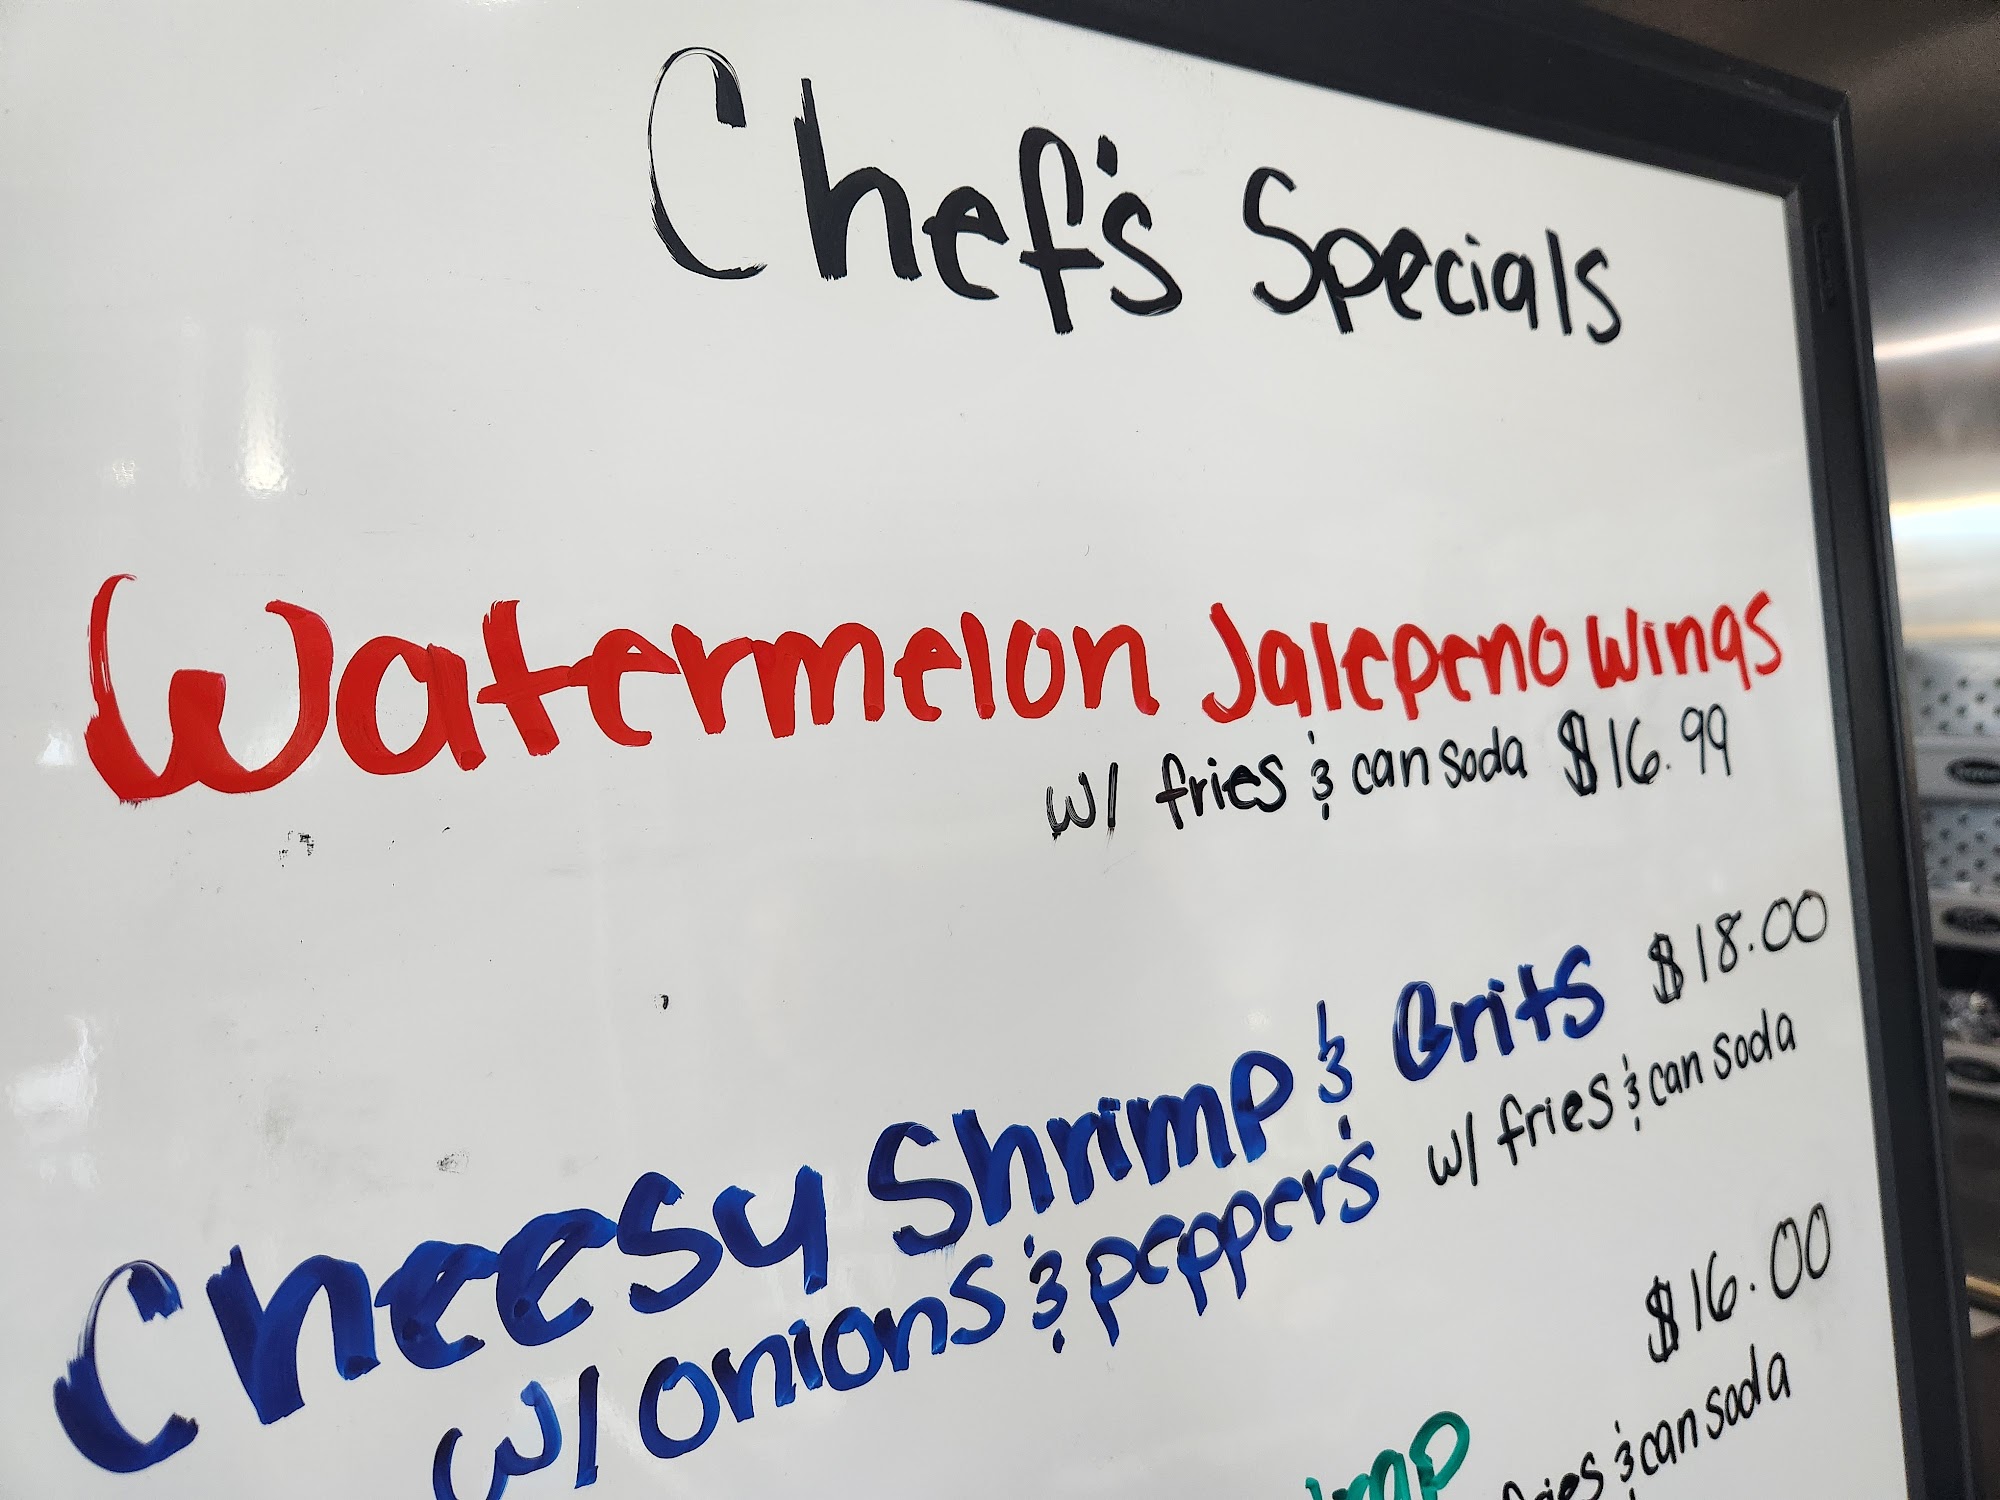 Chef's Specials
Watermelon Jalepeno Wings
w/ fries & can soda $16.99
Cheesy Shrimp & Grits $18.00
w/ onions & peppers w/ fries & can soda
$16.00
fries & can soda